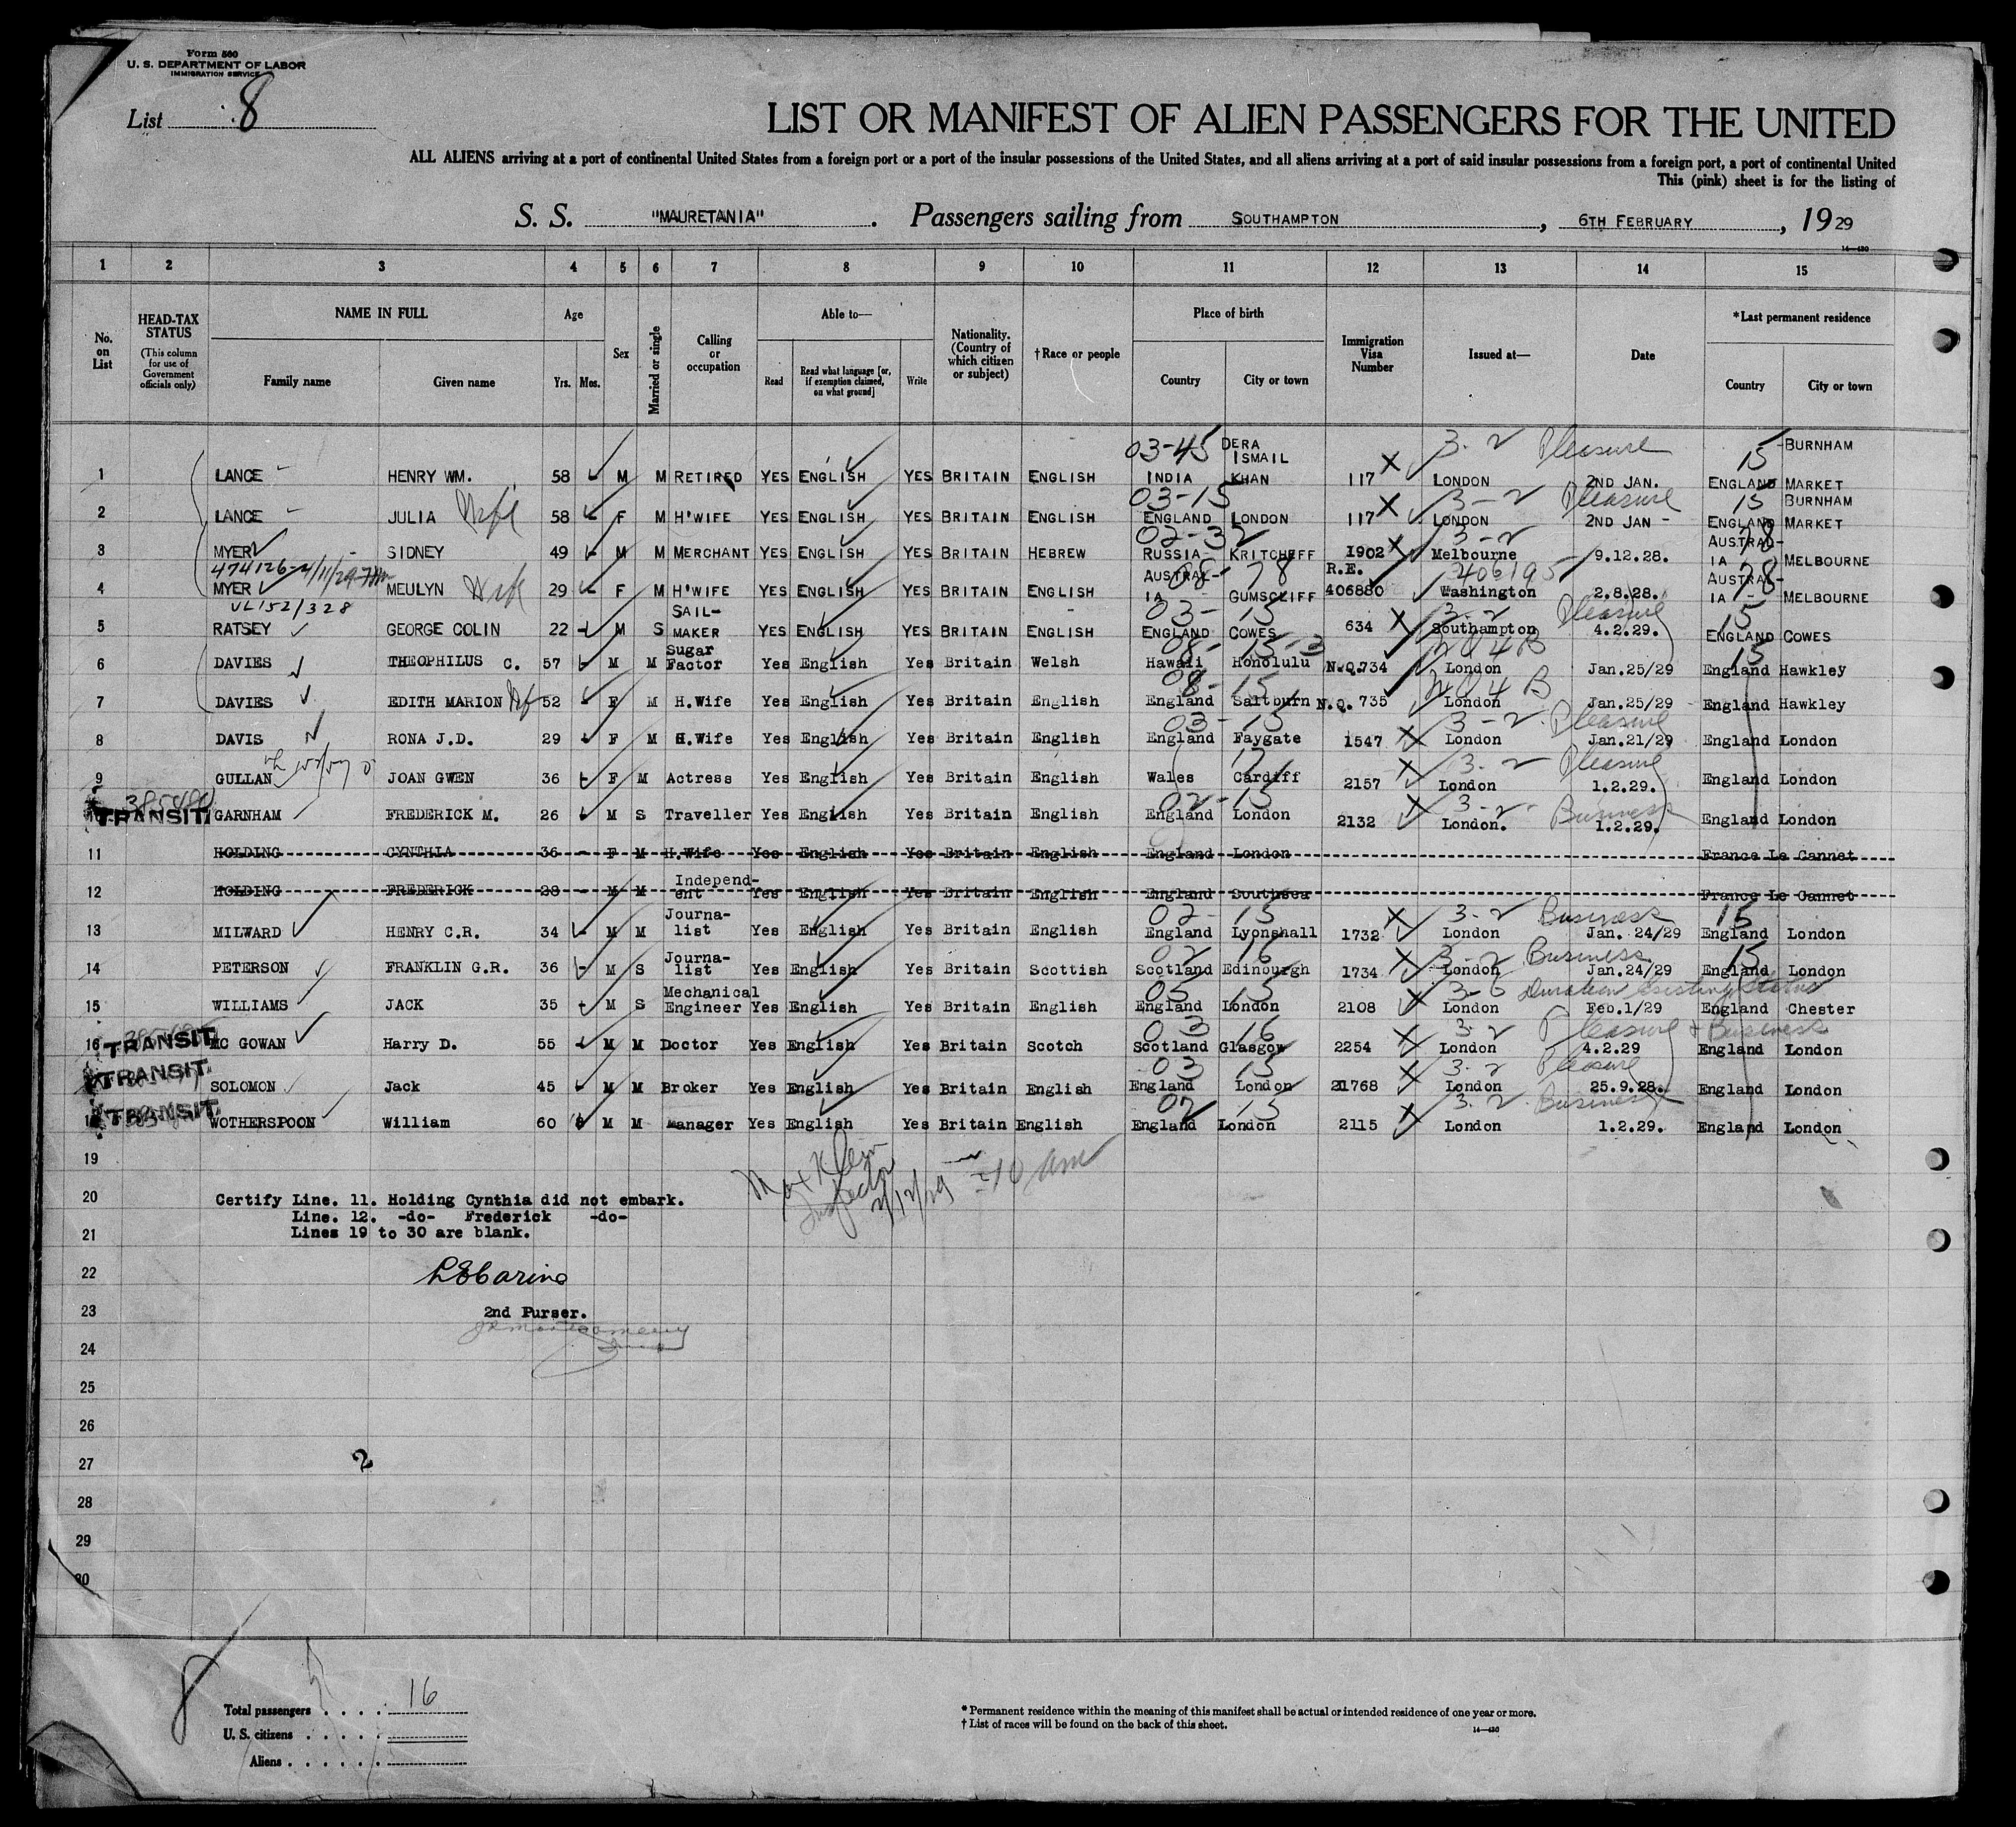 Form 500
U. S. DEPARTMENT OF LABOR
IMMIGRATION SERVICE
List 8
LIST OR MANIFEST OF ALIEN PASSENGERS FOR THE UNITED
ALL ALIENS arriving at a port of continental United States from a foreign port or a port of the insular possessions of the United States, and all aliens arriving at a port of said insular possessions from a foreign port, a port of continental United
This (pink) sheet is for the listing of
S. S. "MAURETANIA". Passengers sailing from SOUTHAMPTON, 6TH FEBRUARY, 1929
1 2 3 4 5 6 7 8 9 10 11 12 13 14 15
No. on List
HEAD-TAX STATUS (This column for use of Government officials only)
NAME IN FULL
Family name Given name
Age
Yrs. Mos.
Sex
Married or single
Calling or occupation
Able to—
Read Read what language [or, if exemption claimed, on what ground] Write
Nationality. (Country of which citizen or subject)
†Race or people
Place of birth
Country City or town
Immigration Visa Number
Issued at—
Date
*Last permanent residence
Country City or town
1 LANCE HENRY WM. 58 M M RETIRED YES ENGLISH YES BRITAIN ENGLISH 03-45 INDIA DERA ISMAIL KHAN 117 3-2 LONDON Pleasure 2ND JAN. 15 ENGLAND BURNHAM MARKET
2 LANCE JULIA Wife 58 F M H'WIFE YES ENGLISH YES BRITAIN ENGLISH 03-15 ENGLAND LONDON 117 3-2 LONDON Pleasure 2ND JAN - 15 ENGLAND BURNHAM MARKET
3 MYER SIDNEY 49 M M MERCHANT YES ENGLISH YES BRITAIN HEBREW 02-32 RUSSIA KRITCHEFF 1902 3-2 Melbourne 9.12.28. 78 AUSTRAL-IA MELBOURNE
474126-4/11/29
4 MYER MEULYN Wife 29 F M H'WIFE YES ENGLISH YES BRITAIN ENGLISH 08- 78 AUSTRAL-IA GUMSCLIFF R.E. 406880 406195 Washington 2.8.28. 78 AUSTRAL-IA MELBOURNE
VL152/328
5 RATSEY GEORGE COLIN 22 M S SAIL-MAKER YES ENGLISH YES BRITAIN ENGLISH 03- 15 ENGLAND COWES 634 3-2 Southampton Pleasure 4.2.29. 15 ENGLAND COWES
6 DAVIES THEOPHILUS C. 57 M M Sugar Factor Yes English Yes Britain Welsh 08- 15-3 Hawaii Honolulu N.Q.734 NQ 4 B London Jan.25/29 15 England Hawkley
7 DAVIES EDITH MARION Wf 52 F M H.Wife Yes English Yes Britain English 08-15 England Saltburn N.Q. 735 NQ 4 B London Jan.25/29 England Hawkley
8 DAVIS RONA J.D. 29 F M H.Wife Yes English Yes Britain English 03-15 England Faygate 1547 3-2 London Pleasure Jan.21/29 England London
9 GULLAN JOAN GWEN 36 F M Actress Yes English Yes Britain English Wales Cardiff 2157 3-2 London Pleasure 1.2.29. England London
385480
TRANSIT. GARNHAM FREDERICK M. 26 M S Traveller Yes English Yes Britain English 02-15 England London 2132 3-2 London. Business 1.2.29. England London
11 HOLDING CYNTHIA 36 - F M H.Wife Yes English Yes Britain English England London France Le Cannet
12 HOLDING FREDERICK 28 - M M Independ-ent Yes English Yes Britain English England Southsea France Le Cannet
13 MILWARD HENRY C.R. 34 M M Journa-list Yes English Yes Britain English 02- 15 England Lyonshall 1732 3-2 London Business Jan. 24/29 15 England London
14 PETERSON FRANKLIN G.R. 36 M S Journa-list Yes English Yes Britain Scottish 02 16 Scotland Edinburgh 1734 3-2 London Business Jan.24/29 15 England London
15 WILLIAMS JACK 35 M S Mechanical Engineer Yes English Yes Britain English 03 15 England London 2108 3-6 London Duration Existing Status Feb.1/29 England Chester
16 TRANSIT. MC GOWAN Harry D. 55 M M Doctor Yes English Yes Britain Scotch 03 16 Scotland Glasgow 2254 3-2 London Pleasure & Business 4.2.29 England London
TRANSIT. SOLOMON Jack 45 M M Broker Yes English Yes Britain English 03 15 England London 21768 3-2 London Pleasure 25.9.28. England London
TRANSIT. WOTHERSPOON William 60 M M Manager Yes English Yes Britain English 02 15 England London 2115 3-2 London Business 1.2.29. England London
19
Max Klein
Inspector
2/12/29 10 am
20 Certify Line. 11. Holding Cynthia did not embark.
Line. 12. -do- Frederick -do-
21 Lines 19 to 30 are blank.
22
23 2nd Purser.
24
25
26
27 2
28
29
30
8
Total passengers . . . . 16
U. S. citizens . . . . .
Aliens . . . . . .
* Permanent residence within the meaning of this manifest shall be actual or intended residence of one year or more.
† List of races will be found on the back of this sheet.
14—430